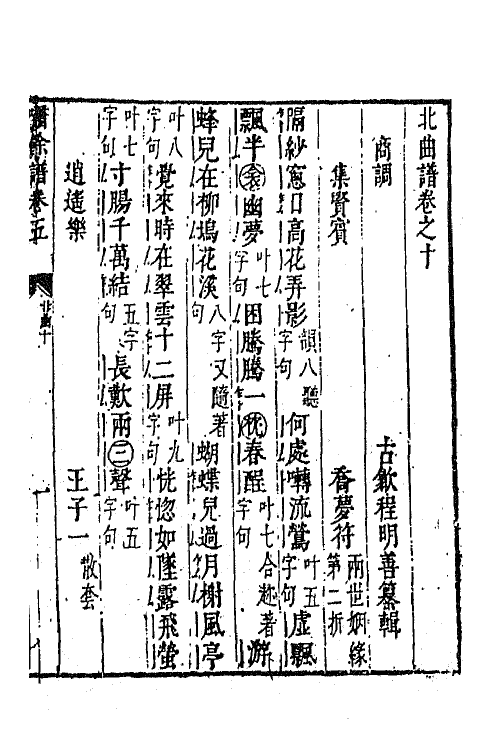 北曲譜卷之十
古歙程明善纂輯
商調
集賢賓 喬夢符 兩世姻緣第二折
隔紗窓日高花弄影 韻八聽字句 何處囀流鶯 叶五字句 虛飄
飄半衾幽夢 叶七字句 困騰騰一枕春酲 叶七字句 合趂著游
蜂兒在柳塢花溪 八字句 又隨著蝴蝶兒過月榭風亭
叶八字句 覺來時在翠雲十二屏 叶九字句 恍惚如墜露飛螢
叶七字句 寸腸千萬結 五字句 長歎兩三聲 叶五字句
逍遙樂 王子一 散套
嘯餘譜卷五 北曲十 一